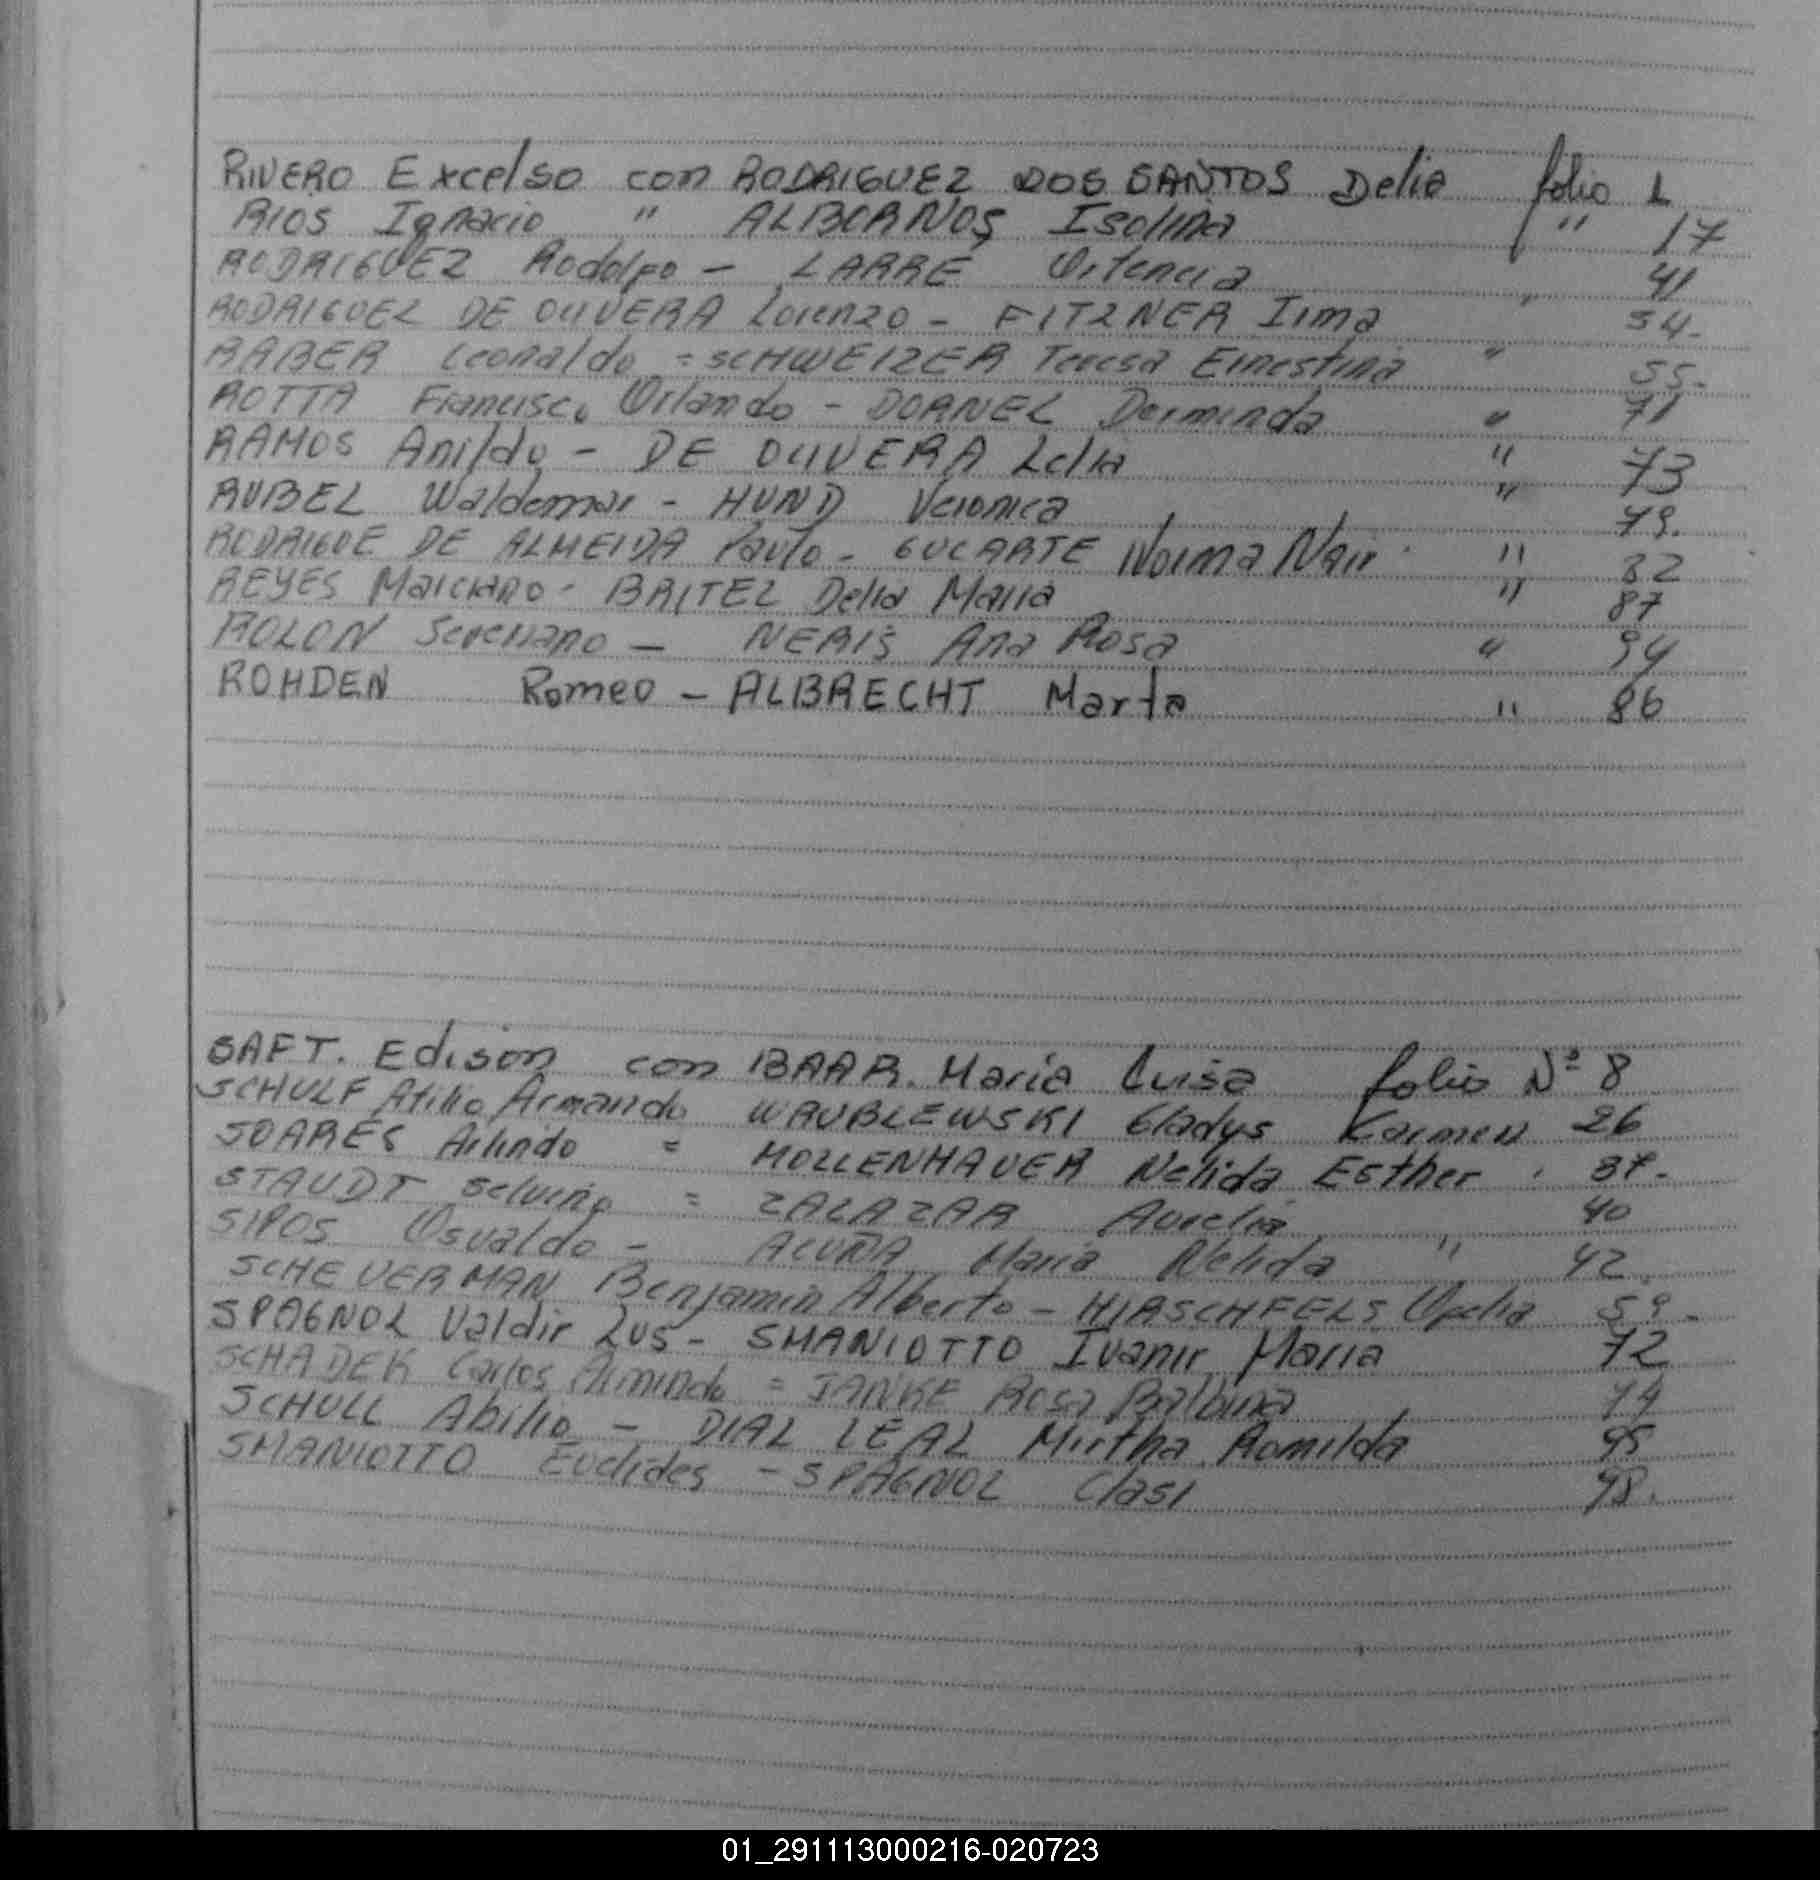 RIVERO Excelso con RODRIGUEZ DOS SANTOS Delia folio 1
RIOS Ignacio " ALBORNOS Isolina " 17
RODRIGUEZ Rodolfo - LARRE Ortencia 41
RODRIGUEZ DE OLIVERA Lorenzo - FITZNER Irma " 54.
RABER Leonaldo = SCHWEIZER Teresa Ernestina " 55.
ROTTA Francisco Orlando - DORNEL Dorminda " 71
RAMOS Anildo - DE OLIVERA Lelia " 73
RUBEL Waldemar - HUND Veronica " 79.
RODRIGUE DE ALMEIDA Paulo - GULARTE Norma Nair " 82
REYES Marciano - BRITEL Delia Maria " 87
ROLON Severiano - NERIS Ana Rosa " 94
ROHDEN Romeo - ALBRECHT Marta " 86
SAFT. Edison con BAAR. Maria Luisa folio Nº 8
SCHULF Atilio Armando WRUBLEWSKI Gladys Karmen 26
SOARES Arlindo = MOLLENHAUER Nelida Esther 37.
STAUDT Selvino = ZALAZAR Aurelia 40
SIPOS Osvaldo - ACUÑA Maria Nelida " 42.
SCHEUERMAN Benjamin Alberto - HIRSCHFELS Ofelia 59.
SPAGNOL Valdir Luis - SMANIOTTO Ivanir Maria 72
SCHADEK Carlos Armindo = JANKE Rosa Balbina 74
SCHULL Abilio - DIAL LEAL Mirtha Romilda 95
SMANIOTTO Euclides - SPAGNOL Clasi 98.
01_291113000216-020723